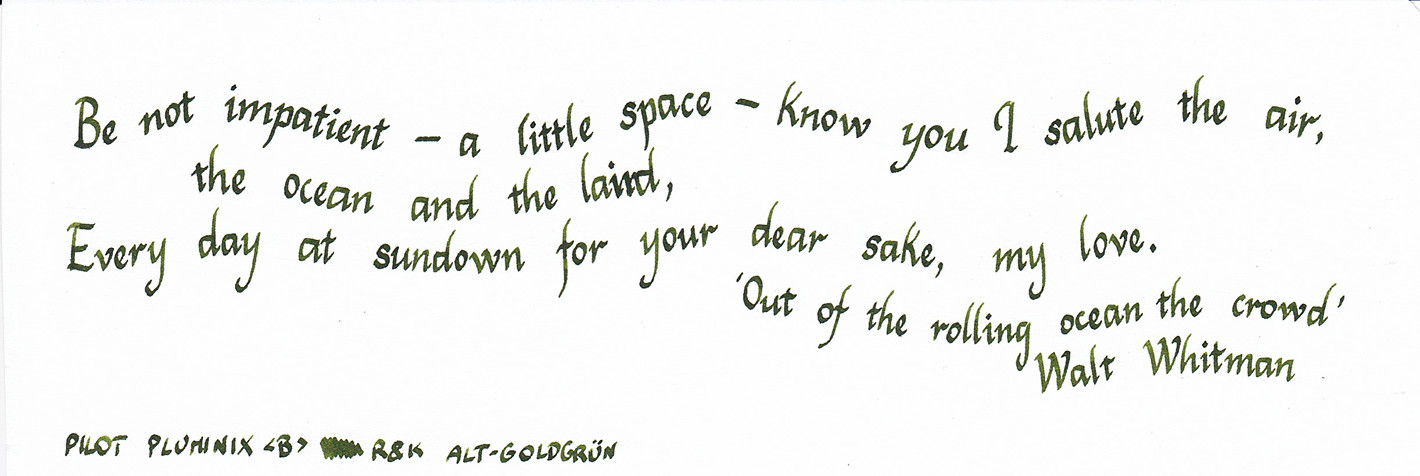 Be not impatient – a little space – Know you I salute the air,
the ocean and the laind,
Every day at sundown for your dear sake, my love.
'Out of the rolling ocean the crowd'
Walt Whitman
PILOT PLUMINIX <B> R&K ALT-GOLDGRÜN